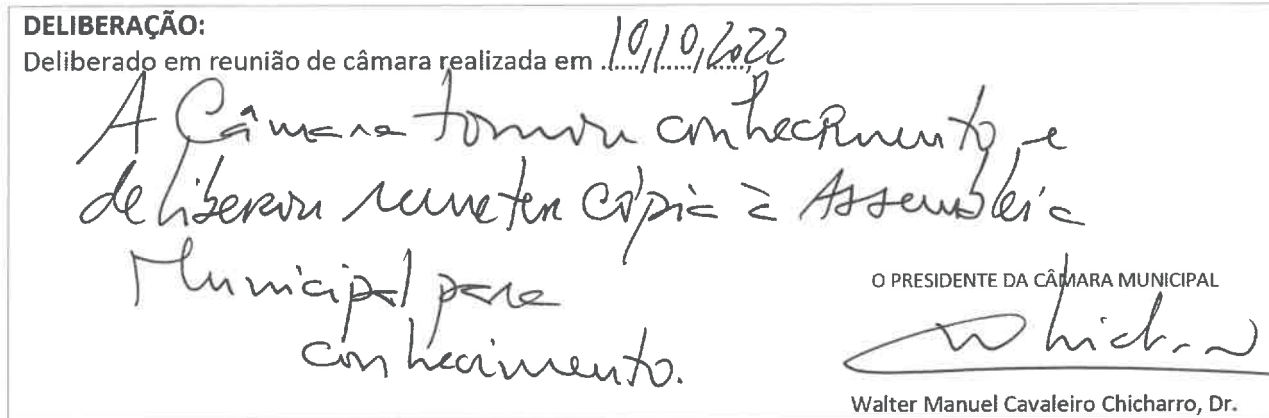 DELIBERAÇÃO:
Deliberado em reunião de câmara realizada em 10/10/2022
A Câmara tomou conhecimento e
deliberou remeter cópia à Assembleia
Municipal para
conhecimento.
O PRESIDENTE DA CÂMARA MUNICIPAL
Walter Manuel Cavaleiro Chicharro, Dr.